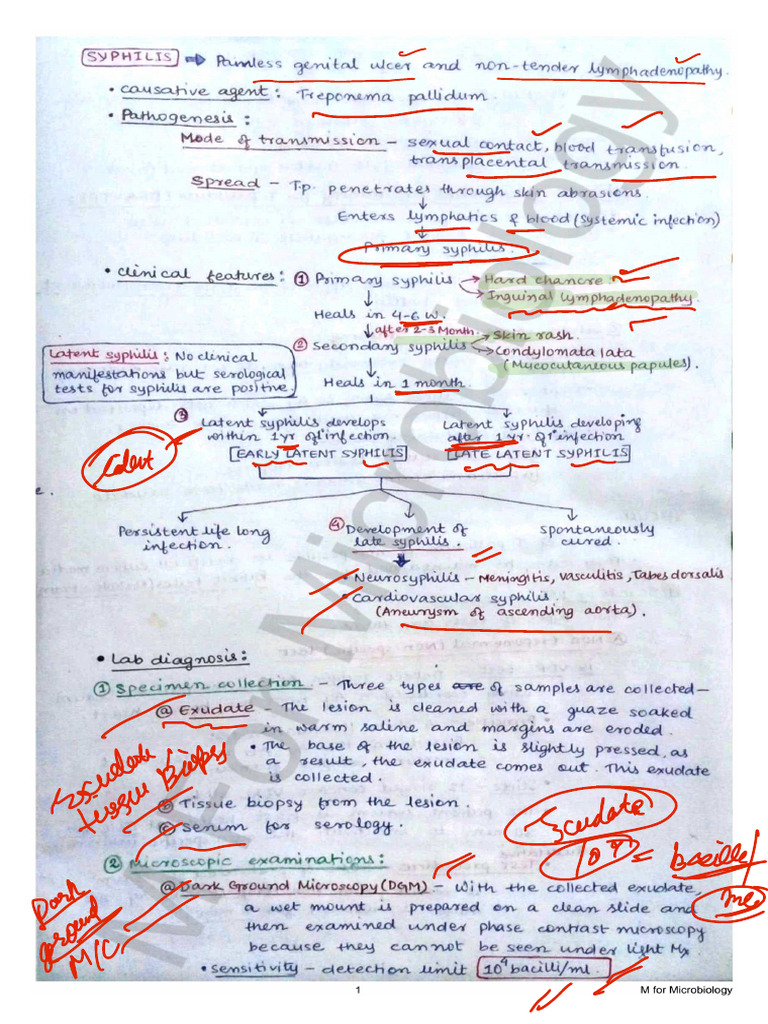 SYPHILIS ⇒ Painless genital ulcer and non-tender lymphadenopathy.
• causative agent : Treponema pallidum.
• Pathogenesis :
Mode of transmission – sexual contact, blood transfusion,
transplacental transmission.
Spread – T.p. penetrates through skin abrasions.
↓
Enters lymphatics & blood (systemic infection)
↓
Primary syphilis.
• clinical features : ① Primary syphilis → Hard chancre.
→ Inguinal lymphadenopathy.
Heals in 4-6 W.
↓ after 2-3 Month.
② Secondary syphilis → Skin rash.
→ Condylomata lata
(Mucocutaneous papules).
Latent syphilis : No clinical
manifestations but serological
tests for syphilis are positive.
Heals in 1 month.
③ Latent syphilis develops
within 1yr of infection.
[EARLY LATENT SYPHILIS]
Latent syphilis developing
after 1 yr of infection
[LATE LATENT SYPHILIS]
e.
Persistent life long
infection.
④ Development of
late syphilis.
Spontaneously
cured.
• Neurosyphilis – Meningitis, vasculitis, Tabes dorsalis
• Cardiovascular syphilis
(Aneurysm of ascending aorta).
• Lab diagnosis :
① Specimen collection – Three types of samples are collected –
ⓐ Exudate – The lesion is cleaned with a guaze soaked
in warm saline and margins are eroded.
• The base of the lesion is slightly pressed, as
a result, the exudate comes out. This exudate
is collected.
Exudate
Biopsy
ⓑ Tissue biopsy from the lesion.
ⓒ Serum for serology.
② Microscopic examinations :
ⓐ Dark Ground Microscopy (DGM) – With the collected exudate,
a wet mount is prepared on a clean slide and
then examined under phase contrast microscopy
because they cannot be seen under light Mx.
• Sensitivity – detection limit 10⁴ bacilli/ml.
Dark
ground
M/C
bacilli/
ml
M for Microbiology
1
M for Microbiology